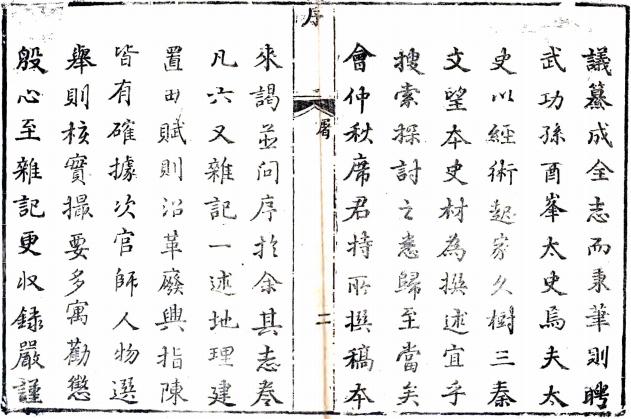 議纂成全志而秉筆則聘
武功孫酉峯太史焉夫太
史以經術起家久樹三秦
文望本史材為撰述宜乎
搜索探討之悉歸至當矣
會仲秋席君持所撰稿本
序
二
來謁並問序於余其志卷
凡六又雜記一述地理建
置田賦則沿革廢興指陳
皆有確據次官師人物選
舉則核實撮要多寓勸懲
殷心至雜記更收録嚴謹